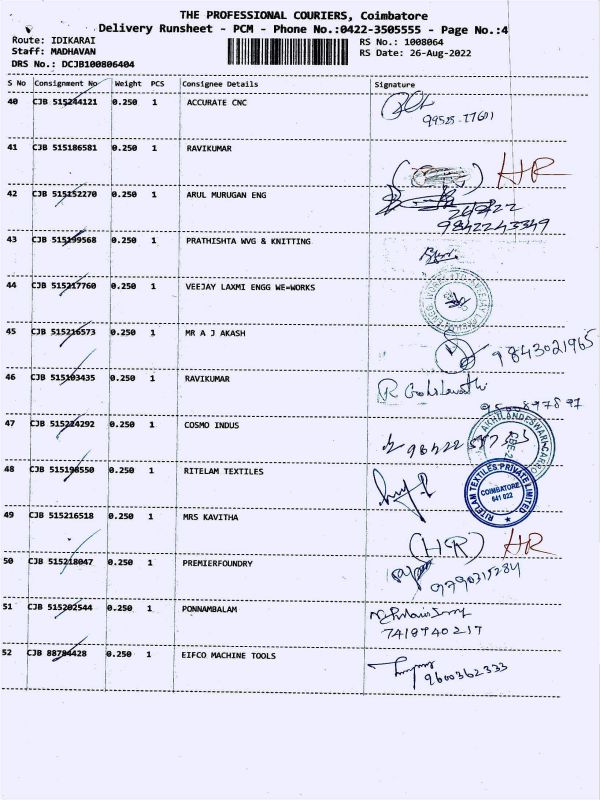 THE PROFESSIONAL COURIERS, Coimbatore
Delivery Runsheet - PCM - Phone No.:0422-3505555 - Page No.:4
Route: IDIKARAI RS No.: 1008064
Staff: MADHAVAN RS Date: 26-Aug-2022
DRS No.: DCJB100806404
S No Consignment No Weight PCS Consignee Details Signature
40 CJB 515244121 0.250 1 ACCURATE CNC
99525-77601
41 CJB 515186581 0.250 1 RAVIKUMAR
HR
42 CJB 515152270 0.250 1 ARUL MURUGAN ENG
9842243349
43 CJB 515199568 0.250 1 PRATHISHTA WVG & KNITTING
44 CJB 515217760 0.250 1 VEEJAY LAXMI ENGG WE=WORKS
45 CJB 515216573 0.250 1 MR A J AKASH
9843021965
46 CJB 515103435 0.250 1 RAVIKUMAR
47 CJB 515224292 0.250 1 COSMO INDUS
48 CJB 515198550 0.250 1 RITELAM TEXTILES
RITELAM TEXTILES PRIVATE LIMITED
COIMBATORE
641 022
49 CJB 515216518 0.250 1 MRS KAVITHA
(HR) HR
50 CJB 515218047 0.250 1 PREMIERFOUNDRY
9790315284
51 CJB 515202544 0.250 1 PONNAMBALAM
7418940217
52 CJB 88784428 0.250 1 EIFCO MACHINE TOOLS
9600362333